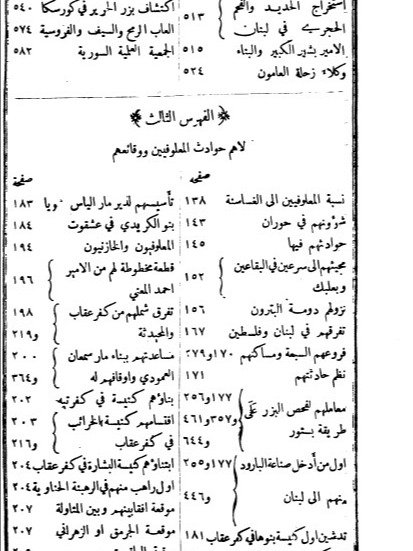 إستخراج الحديد والفحم
الحجريّ في لبنان ٥١٣
الامير بشير الكبير والبناء ٥١٥
وكلاء زحلة العامون ٥٢٤
اكتشاف بزر الحرير في كورسكا ٥٤٠
العاب الرمح والسيف والفروسية ٥٧٤
الجمعية العلمية السورية ٥٨٢
الفهرس الثالث
لاهم حوادث المعلوفيين ووقائعهم
صفحة
نسبة المعلوفيين الى الغساسنة ١٣٨
شؤونهم في حوران ١٤٣
حوادثهم فيها ١٤٥
مجيئهم الى سرعين في البقاعين
وبعلبك ١٥٢
نزولهم دومة البترون ١٥٦
تفرقهم في لبنان وفلسطين ١٦٧
فروعهم السبعة ومساكنهم ١٧٠ و٢٧٩
نظم حادثتهم ١٧١
معاملهم لفحص البزر على
طريقة بستور ١٧٧ و٢٥٦ و٣٥٧ و٤٦١ و٦٤٤
اول من أدخل صناعة البارود
منهم الى لبنان ١٧٧ و٢٥٥ و٤٤٦
تدشين اول كنيسة بنوها في كفرعقاب ١٨١
صفحة
تأسيسهم لدير مار الياس ١٨٣
بنو الكريدي في عشقوت ١٨٤
المعلوفيون والخازنيون ١٩٤
قطعة مخطوطة لهم من الامير
احمد المعني ١٩٦
تفرق شملهم من كفرعقاب
والمحيدثة ١٩٨ و٢١٩
مساعدتهم ببناء مار سمعان
العمودي واوقافهم له ٢٠٠ و٣٦٤
بناؤهم كنيسة في كفرتيه ٢٠٢
اقتسامهم كنيسة الخرائب
في كفرعقاب ٢٠٣ و٢١٦
ابتناؤهم كنيسة البشارة في كفرعقاب ٢٠٤
اول راهب منهم في الرهبنة الحناوية ٢٠٤
موقعة افقابينهم وبين المتاولة ٢٠٧
موقعة الجرمق او الزهراني ٢٠٧